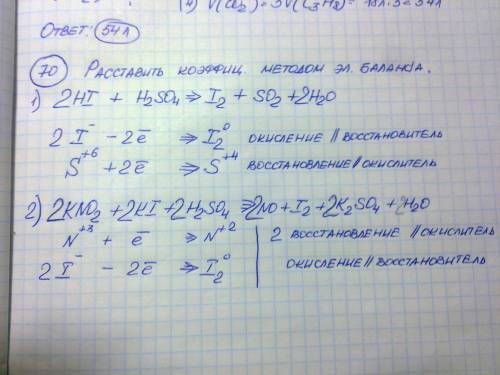 4) V(CO₂) = 3V(C₃H₈) = 18л·3 = 54л
Ответ: 54л
70 Расставить коэффиц. методом эл. баланса.
1) 2HI + H₂SO₄ ⇒ I₂ + SO₂ + 2H₂O
2I⁻ - 2ē ⇒ I₂⁰ окисление // восстановитель
S⁺⁶ + 2ē ⇒ S⁺⁴ восстановление // окислитель
2) 2KNO₂ + 2KI + 2H₂SO₄ ⇒ 2NO + I₂ + 2K₂SO₄ + 2H₂O
N⁺³ + ē ⇒ N⁺² | 2 восстановление // окислитель
2I⁻ - 2ē ⇒ I₂⁰ | окисление // восстановитель